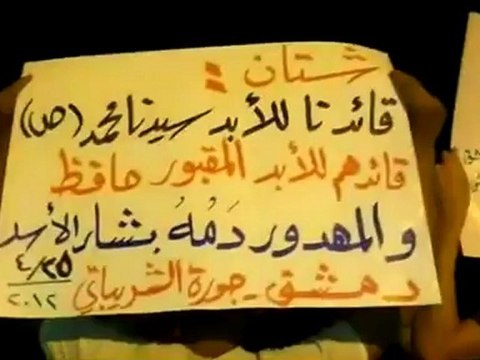 شتان :
قائدنا للأبد سيدنا محمد (ص)
قائدهم للأبد المقبور حافظ
والمهدور دَمُهُ بشار الأسد
٤/٢٥
٢٠١٢
دمشق - جورة الشريباتي